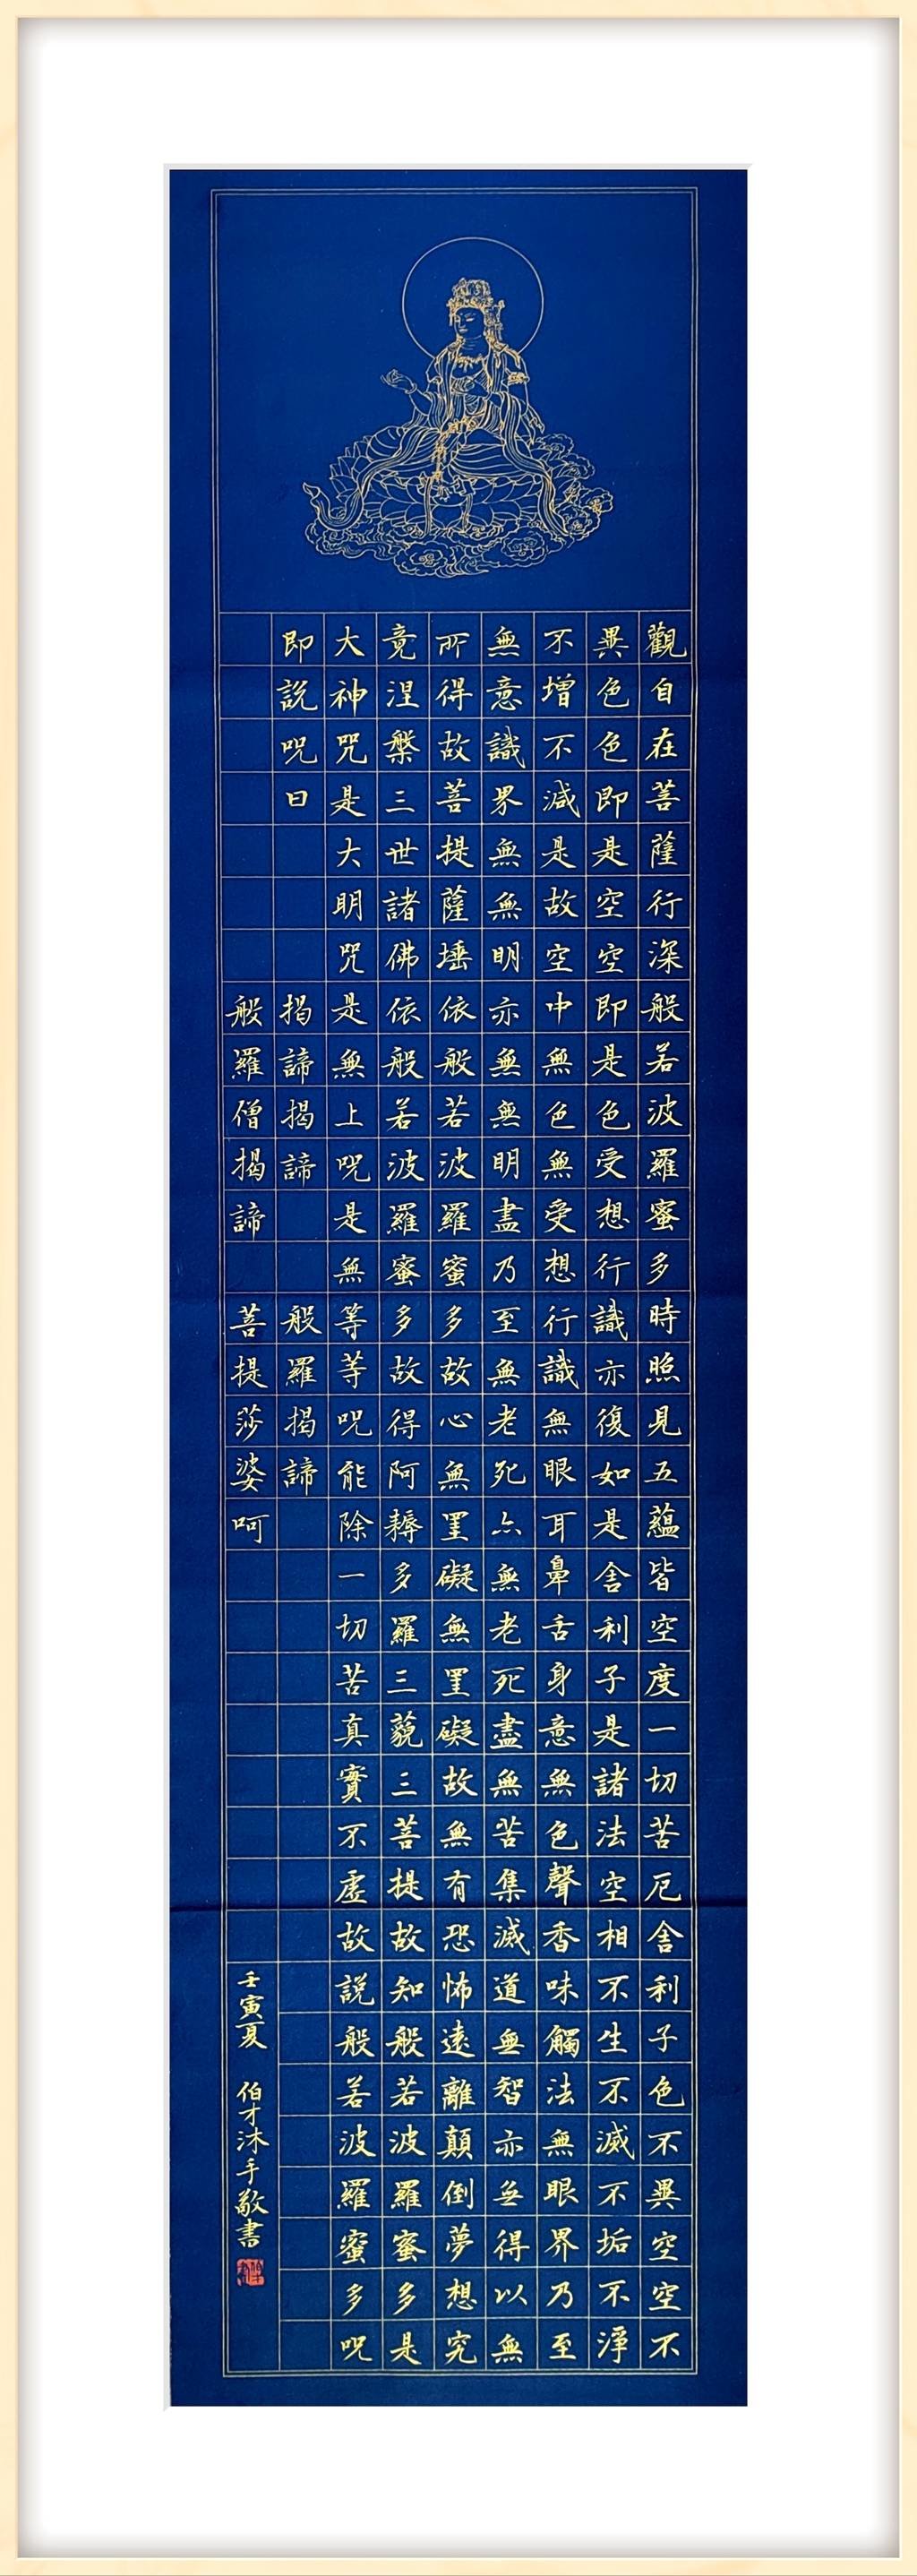 觀自在菩薩行深般若波羅蜜多時照見五蘊皆空度一切苦厄舍利子色不異空空不
異色色即是空空即是色受想行識亦復如是舍利子是諸法空相不生不滅不垢不淨
不增不減是故空中無色無受想行識無眼耳鼻舌身意無色聲香味觸法無眼界乃至
無意識界無無明亦無無明盡乃至無老死亦無老死盡無苦集滅道無智亦無得以無
所得故菩提薩埵依般若波羅蜜多故心無罣礙無罣礙故無有恐怖遠離顛倒夢想究
竟涅槃三世諸佛依般若波羅蜜多故得阿耨多羅三藐三菩提故知般若波羅蜜多是
大神咒是大明咒是無上咒是無等等咒能除一切苦真實不虛故説般若波羅蜜多咒
即說咒曰 揭諦揭諦 般羅揭諦
般羅僧揭諦 菩提莎婆呵
壬寅夏 伯才沐手敬書